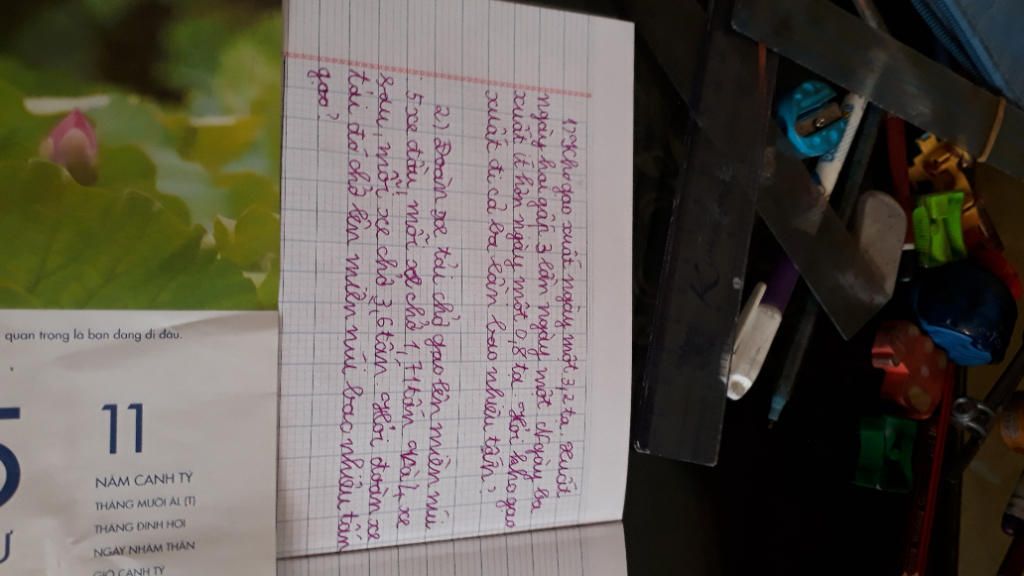 1) Kho gạo xuất ngày một 3,2 tạ xuất
ngày hai gấp 3 lần ngày một. Ngày ba
xuất ít hơn ngày một 0,8 tạ. Hỏi kho gạo
xuất đi cả ba lần bao nhiêu tấn?
2) Đoàn xe tải chở gạo lên miền núi.
5 xe đầu, mỗi xe chở 1,71 tấn gạo; 4 xe
sau, mỗi xe chở 3,6 tấn. Hỏi đoàn xe
tải đó chở lên miền núi bao nhiêu tấn
gạo?
quan trọng là bạn đang đi đâu.
5
Ư
11
NĂM CANH TÝ
THÁNG MƯỜI ÂL (T)
THÁNG ĐINH HỢI
NGÀY NHÂM THÂN
GIỜ CANH TÝ